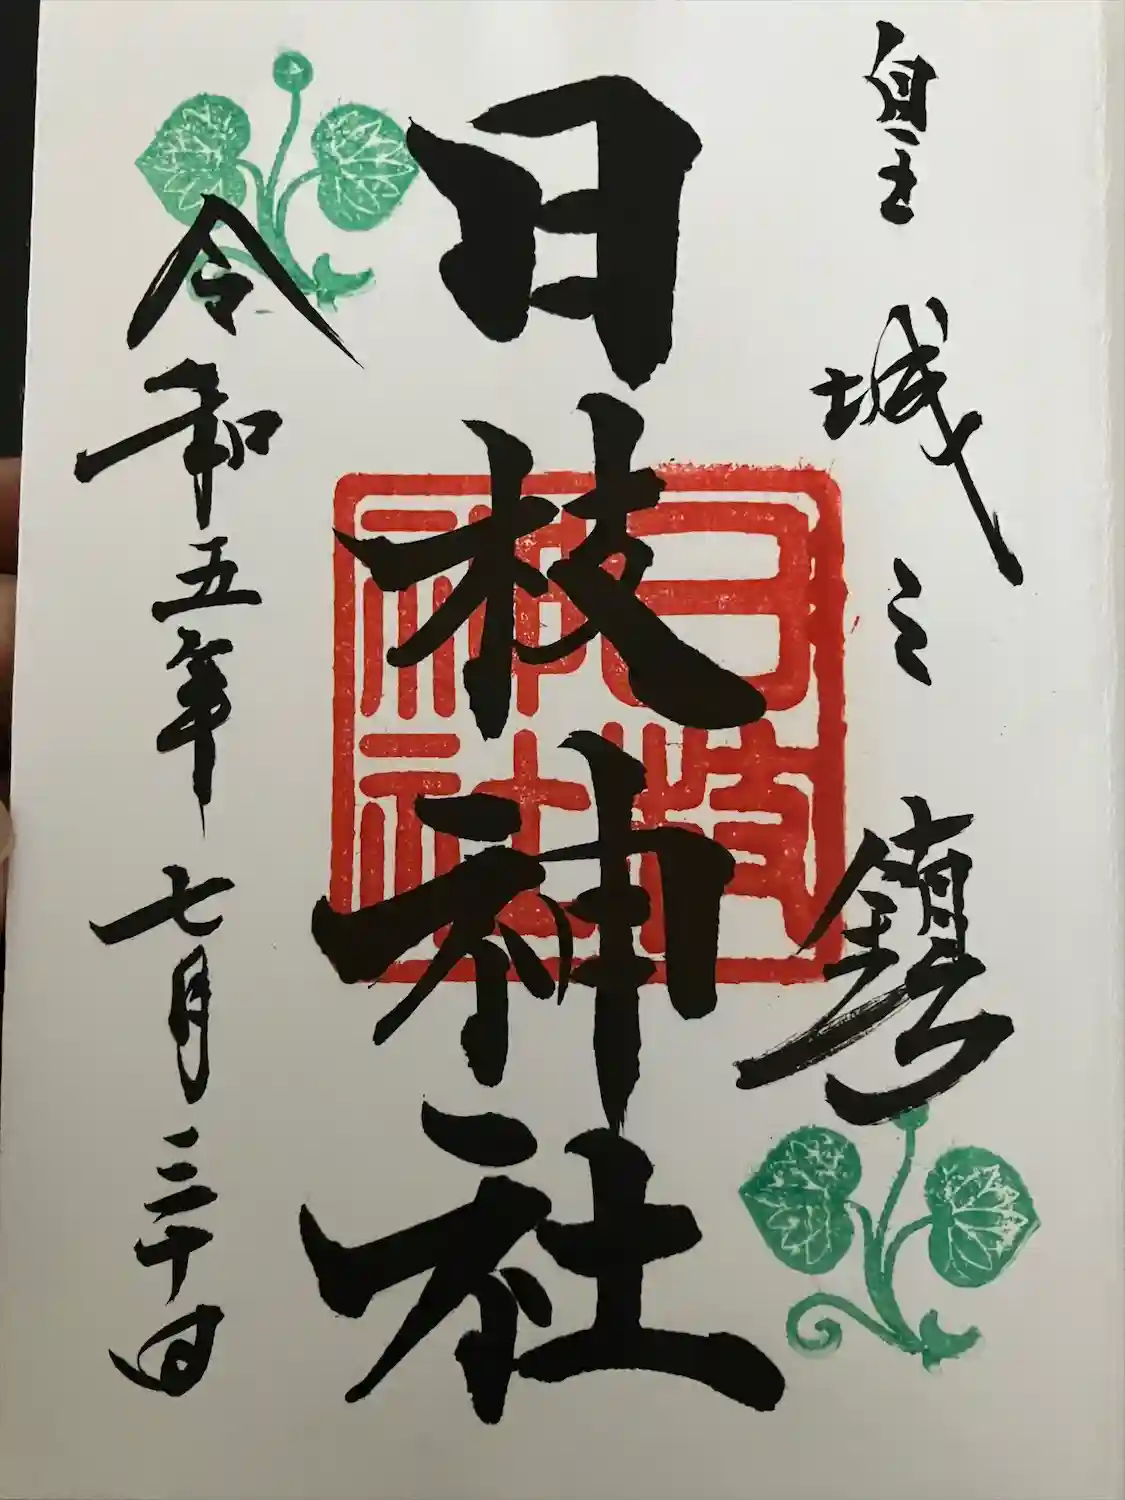 皇城之鎮
日枝神社
日枝神社
令和五年七月三十日